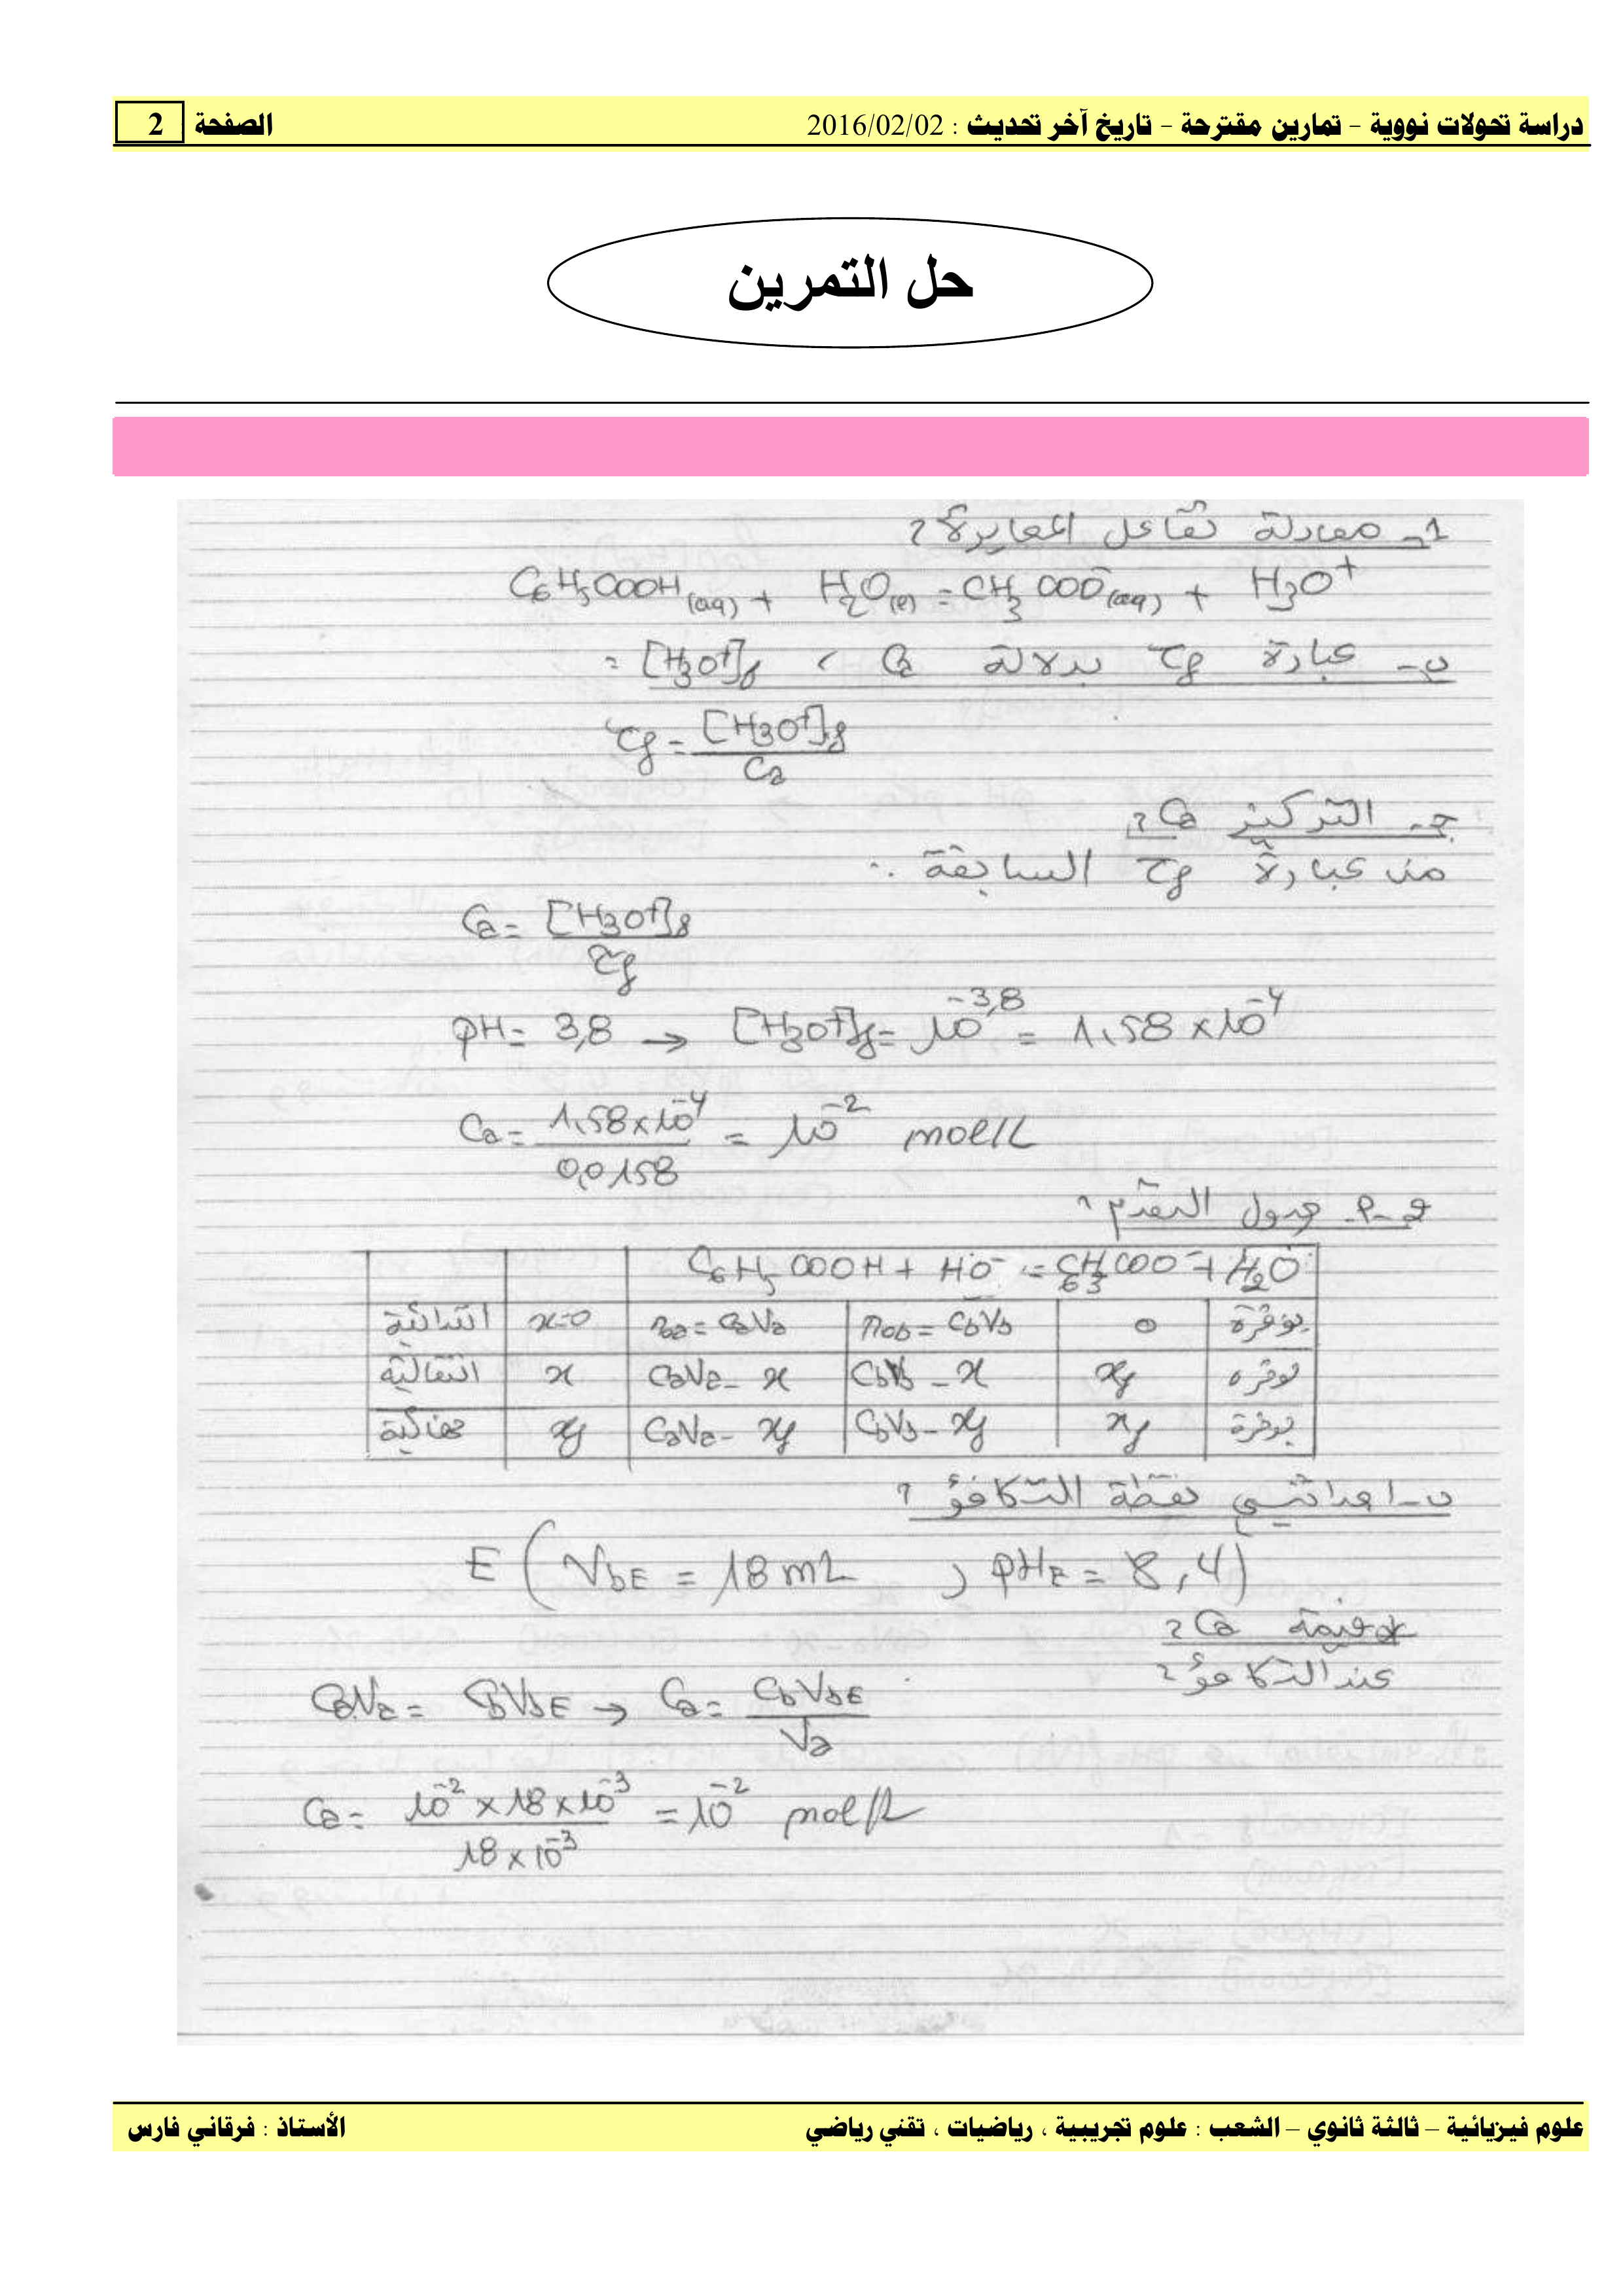 دراسة تحولات نووية – تمارين مقترحة – تاريخ آخر تحديث : 2016/02/02 الصفحة 2
حل التمرين
1- معادلة تفاعل المعايرة ؟
C6H5COOH(aq) + H2O(l) = CH3COO-(aq) + H3O+
ب- عبارة τf بدلالة Ca ، [H3O+]f :
τf = [H3O+]f / Ca
ج- التركيز Ca ؟
من عبارة τf السابقة :
Ca = [H3O+]f / τf
pH = 3,8 → [H3O+]f = 10^-3,8 = 1,58 × 10^-4
Ca = 1,58 × 10^-4 / 0,0158 = 10^-2 mol/L
2-أ- جدول التقدم ؟
C6H5COOH + HO- = C6H3COO- + H2O
ابتدائية x=0 n0a = CaVa n0b = CbVb 0 بوفرة
انتقالية x CaVa - x CbVb - x xf بوفرة
نهائية xf CaVa - xf CbVb - xf xf بوفرة
ب- احداثيي نقطة التكافؤ ؟
E ( VbE = 18 mL , pHE = 8,4 )
* قيمة Ca ؟
عند التكافؤ ؟
CaVa = CbVbE → Ca = CbVbE / Va
Ca = 10^-2 × 18 × 10^-3 / 18 × 10^-3 = 10^-2 mol/L
علوم فيزيائية – ثالثة ثانوي – الشعب : علوم تجريبية ، رياضيات ، تقني رياضي الأستاذ : فرقاني فارس